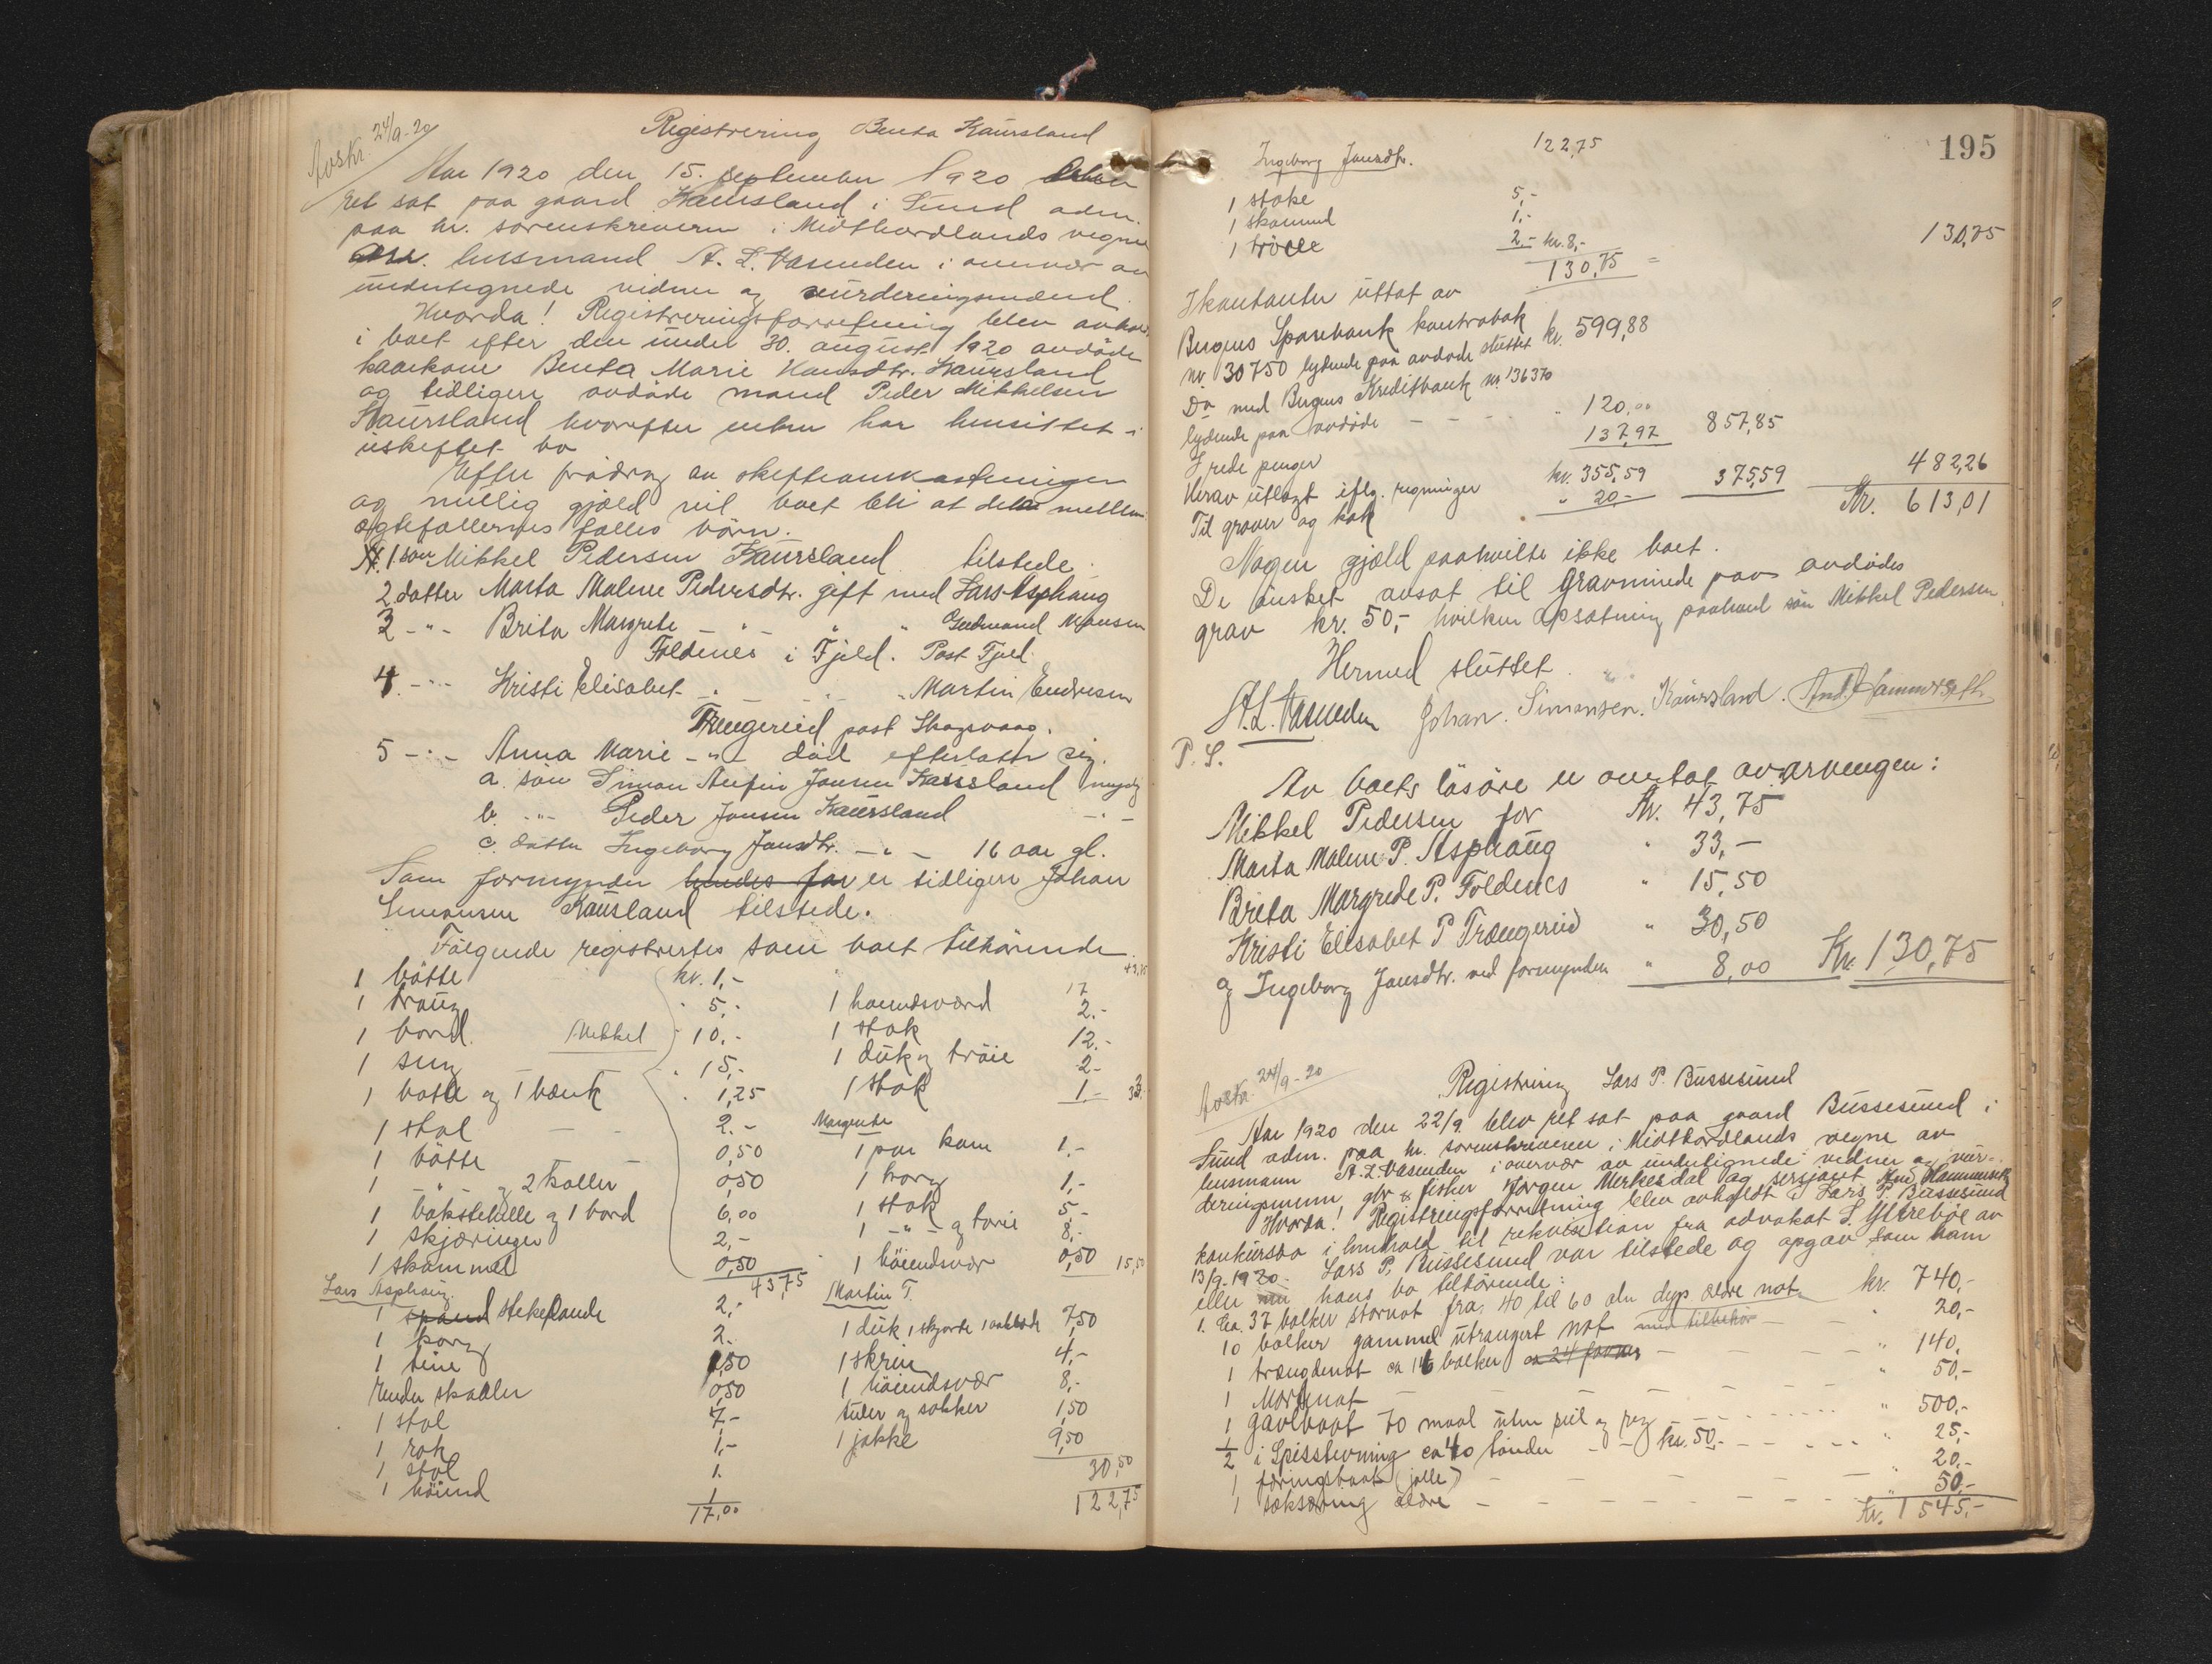 Avskr. 24/9-20
Registrering Benta Kaursland
Aar 1920 den 15. september 1920 blev
ret sat paa gaard Kaursland i Sund adm.
paa hr. sorenskriveren i Midthordlands vegne
av lensmand A. L. Vasenden i overvær av
undertegnede vidner og vurderingsmænd.
Hvorda! Registreringsforretning blev avhold
i boet efter den under 30. august 1920 avdöde
kaarkone Benta Marie Hansdtr. Kaursland
og tidligere avdöde mand Peder Mikkelsen
Kaursland hvorefter enken har hensittet i
uskiftet bo
Efter fradrag av skifteomkostninger
og mulig gjæld vil boet bli at dele mellem
ægtefællernes fælles börn.
N. 1. sön Mikkel Pedersen Kaursland tilstede.
2 datter Marta Malene Pedersdtr. gift med Lars Asphaug
3 - " - Brita Margrete - " - " " Gudmund Monsen
Foldenes i Fjeld. Post Fjeld.
4. - " - Kristi Elisabet - " - " - " Martin Endresen
Trængereid post Skogsvaag.
5 - " - Anna Marie - " - död efterlatte sig.
a. sön Simon Anfin Jansen Kaursland myndig
b. - " - Peder Jansen Kaursland - " -
c. datter Ingeborg Jansdtr. - " - 16 aar gl.
Som formynder hendes far er tidligere Johan
Simonsen Kausland tilstede.
Fölgende registrertes som boet tilhörende
1 bötte kr. 1,- 43,75
1 traug " 5,- 1 haandsværd 17 2.-
1 bord. Mikkel " 10.- 1 stak 12.-
1 seng " 15,- 1 duk og tröie 2-
1 botle og 1 bænk " 1,25 1 stak 1.- 33
1 stol - - 2.- Margrete
1 bötte - 0,50 1 par kam 1.-
1 - " - og 2 koller 0,50 1 korg 1,-
1 bakstehelle og 1 bord 6,00 1 stak 5-
1 skjæringer 2,- 1 - " - og tröie 8,-
1 skammel 0,50 1 höiendsvær 0,50 15,50
Lars Asphaug 43,75 Martin T.
1 spand stekepande 2,- 1 duk 1 skjorte 7,50
1 korg 2. 1 skrin 4,-
1 tine 1,50 1 höiendsvær 8,-
Ender skaaler 0,50 tuler og sokker 1,50
1 stol 7,- 1 jakke 9,50
1 rok 1,- 30,50
1 stol 1.
1 höiend 1
17,00 122,75
195
Ingeborg Jansdtr. 122,75
1 stake 5,-
1 skammel 1.-
1 tröie 2.- kr. 8,- 130,75
130,75 =
I kontanter uttat av
Bergens Sparebank kontrabok
nr. 30750 lydende paa avdöde sluttet kr. 599,88
Do med Bergens Kreditbank nr. 136370
lydende paa avdöde - - - - " 120,00
I rede penger 137,97 857,85
Herav utlagt iflg. regninger kr. 355,59 375,59 482,26
Til graver og kok " 20.- Kr. 613,01
Nogen gjæld paahvilte ikke boet.
De önsket avsat til gravminde paa avdödes
grav kr. 50,- hvilken opsætning paahvel sön Mikkel Pedersen.
Hermed sluttet.
A. L. Vasenden Johan. Simonsen. Kaursland. And. Hammerseth
P. S.
Av boets lösöre er overtat av arvingen:
Mikkel Pedersen for Kr. 43,75
Marta Malene P. Asphaug " 33,-
Brita Margrede P. Foldenes " 15,50
Kristi Elisabet P Trængereid " 30,50
og Ingeborg Jansdtr. ved formynder " 8,00 Kr. 130,75
Avskr. 24/9-20
Registrering Lars P. Bussesund
Aar 1920 den 22/9 blev ret sat paa gaard Bussesund i
Sund adm. paa hr. sorenskriveren i Midthordlands vegne av
lensmann A. L. Vasenden i overvær av undertegnede vidner og vur-
deringsmenn gbr & fisker Jörgen Merkesdal og sersjant And. Hammerseth
Hvorda! Registreringsforretning blev avholdt i Lars P. Bussesund
konkursbo i henhold til rekvisition fra advokat S. Ytreböe av
13/9-1920. Lars P. Bussesund var tilstede og opgav som ham
eller hans bo tilhörende:
1. Ca. 37 balker stornot fra 40 til 60 aln dyp ældre not kr. 740,-
10 balker gammel utrangert not med tilbehör - - " 20,-
1 trængdenot ca 16 balker ca 24 favner - - - - " 140.
1 Mortnot - - - - - - " 50,-
1 gavlbaat 70 maal uten seil og reg - - - - " 500.-
1/2 i Spisstevning ca 40 tönder - - kr. 50,- - - - " 25,-
1 færingsbaat (jolle) - - - - - " 20.-
1 seksæring ældre - - - - - " 50.-
Kr. 1545,-